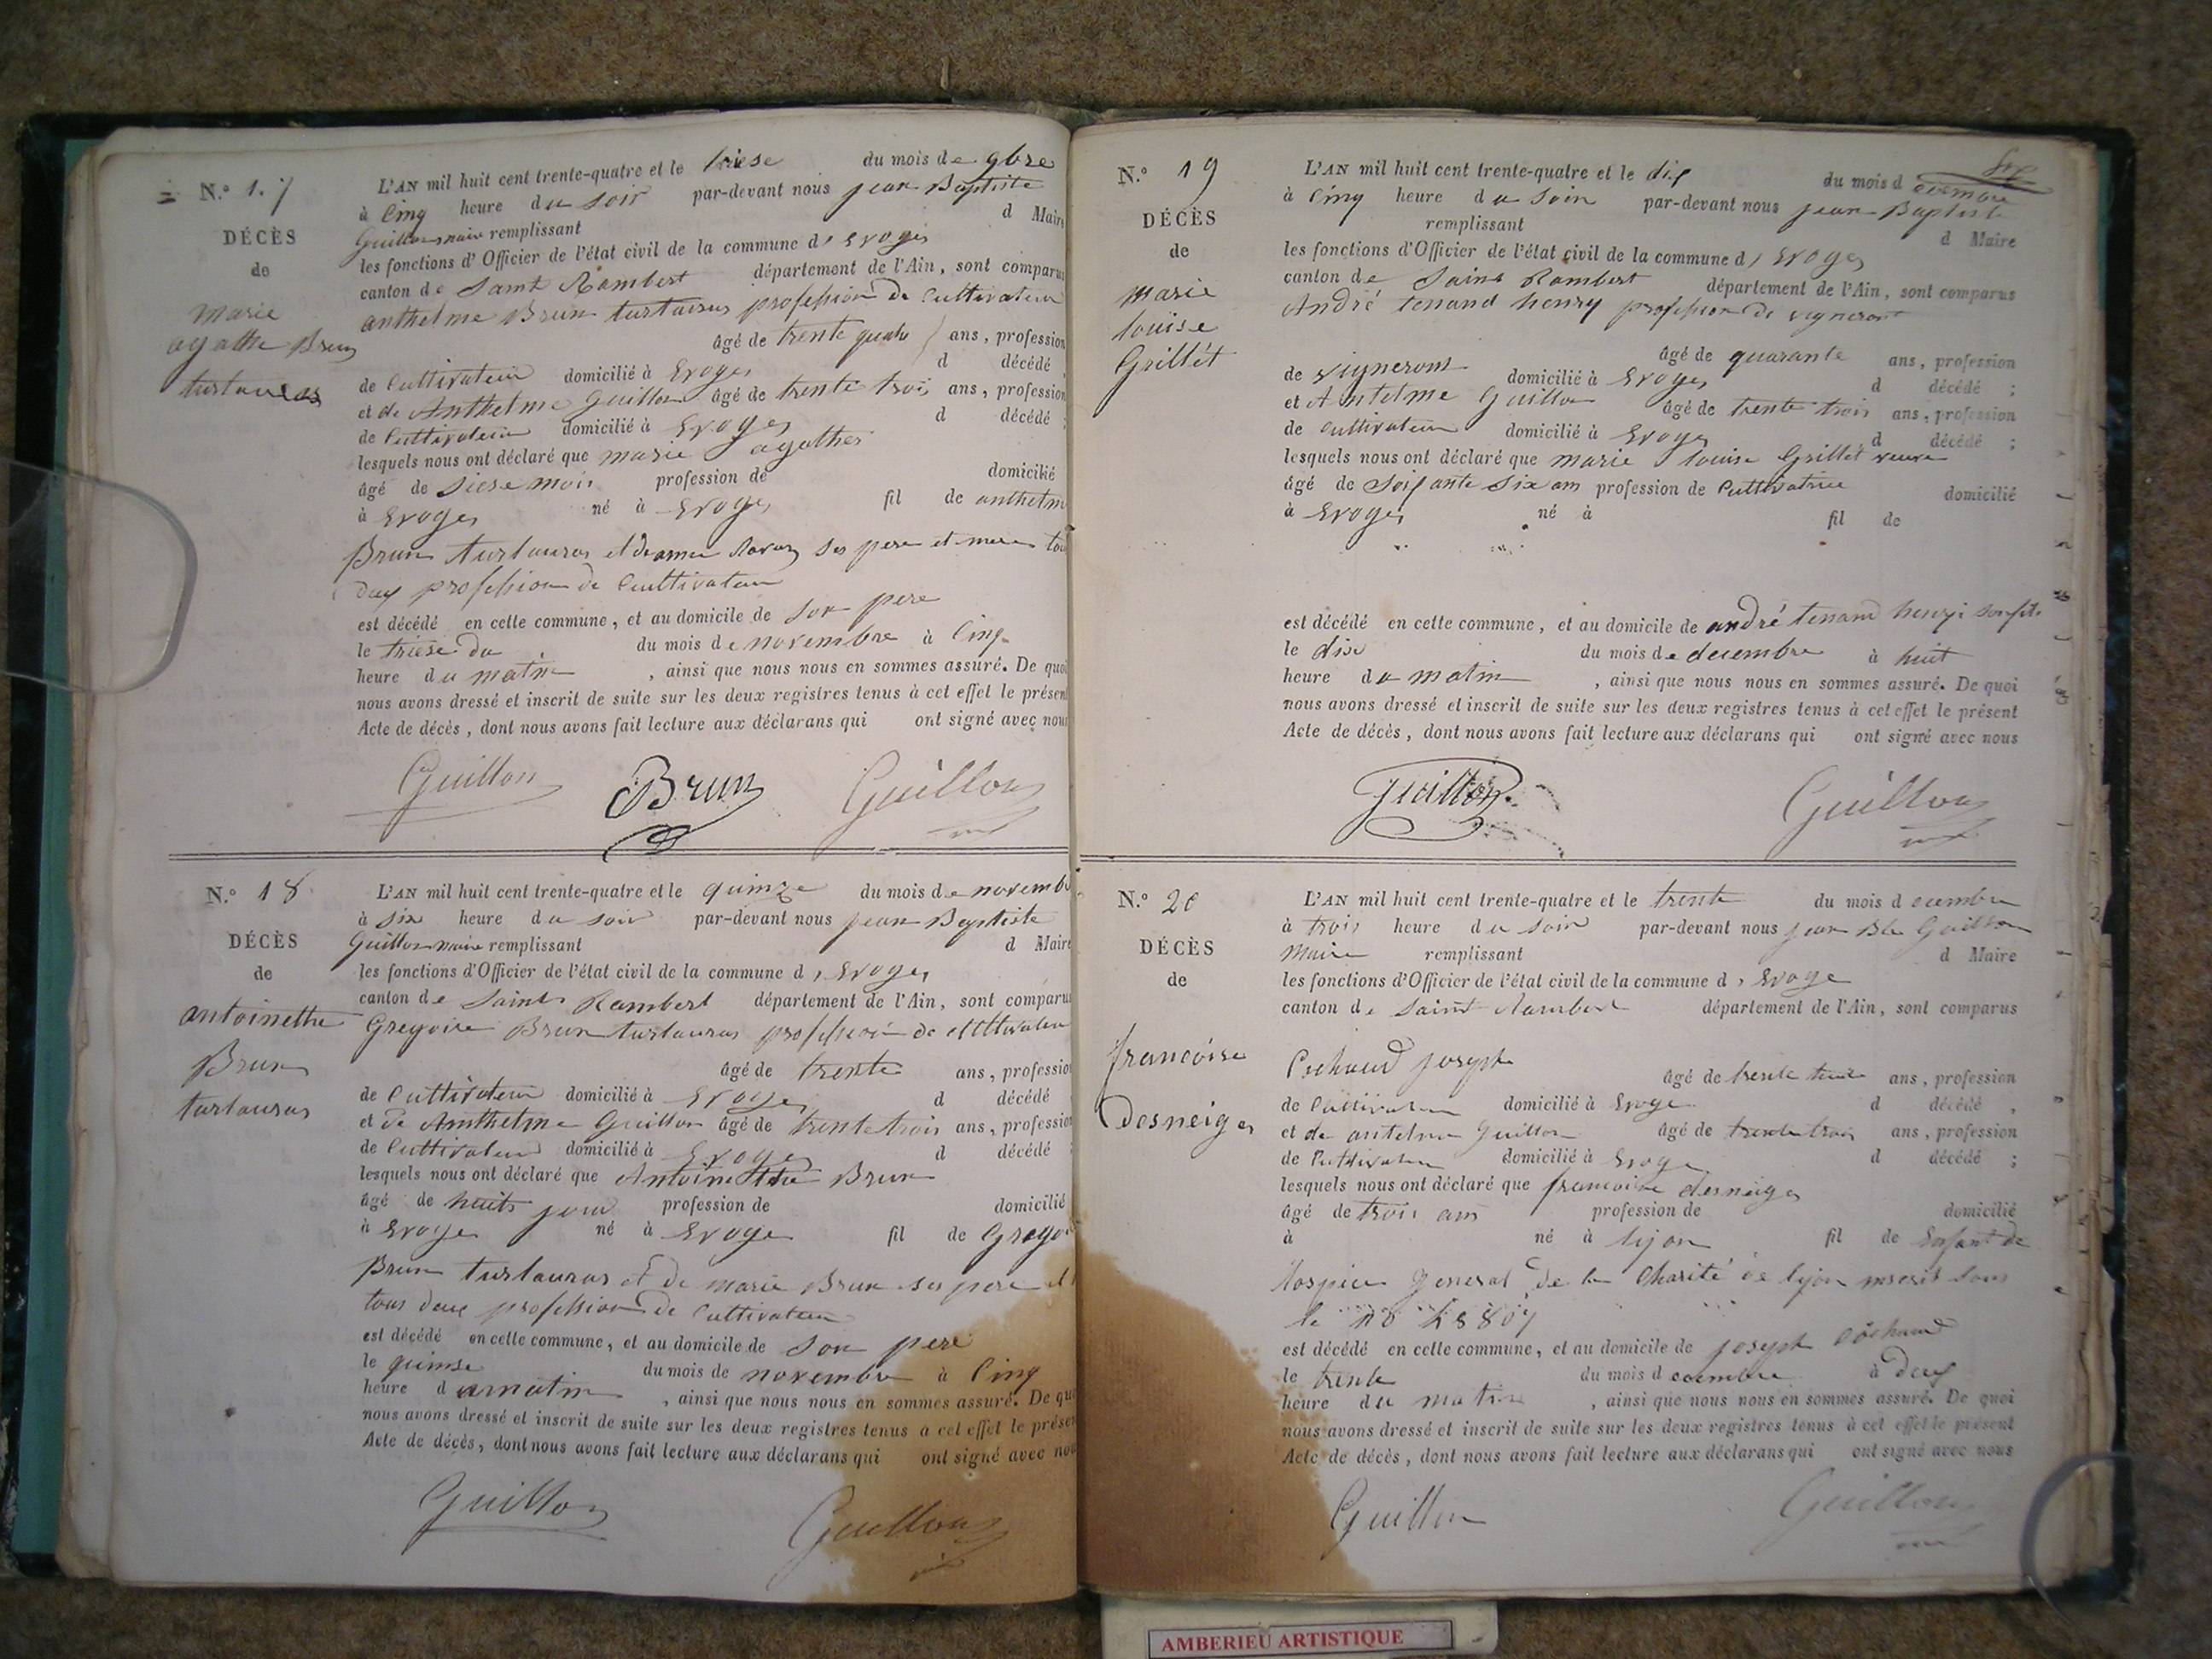 N.o 17
DÉCÈS
de
marie
agathe Brun
turtauras
L'AN mil huit cent trente-quatre et le triese du mois de 9bre
à Cinq heure du soir par-devant nous jean Baptiste
Guillon maire remplissant d Maire
les fonctions d'Officier de l'état civil de la commune d'Evoges
canton de Saint Rambert département de l'Ain, sont comparus
anthelme Brun turtauras profession de Cultivateur
âgé de trente quatre ans, profession
de Cultivateur domicilié à Evoges d décédé
et de Anthelme Guillon âgé de trente trois ans, profession
de Cultivateur domicilié à Evoges d décédé ;
lesquels nous ont déclaré que marie agathes
âgé de siese mois profession de domicilié
à Evoges né à Evoges fil de anthelme
Brun turtauras et de ses pere et mere tou
deux profession de Cultivateur
est décédé en cette commune, et au domicile de son pere
le triese du du mois de novembre à Cinq
heure du matin , ainsi que nous nous en sommes assuré. De quoi
nous avons dressé et inscrit de suite sur les deux registres tenus à cet effet le présent
Acte de décès, dont nous avons fait lecture aux déclarans qui ont signé avec nous
Guillon Brun Guillon
N.o 18
DÉCÈS
de
antoinethe
Brun
turtauras
L'AN mil huit cent trente-quatre et le quinze du mois de novemb
à six heure du soir par-devant nous jean Baptiste
Guillon maire remplissant d Maire
les fonctions d'Officier de l'état civil de la commune d'Evoges
canton de Saint Rambert département de l'Ain, sont comparus
Gregoire Brun turtauras profession de
âgé de trente ans, profession
de Cultivateur domicilié à Evoges d décédé
et de Anthelme Guillon âgé de trente trois ans, profession
de Cultivateur domicilié à Evoges d décédé ;
lesquels nous ont déclaré que Antoinethe Brun
âgé de huits jour profession de domicilié
à Evoges né à Evoges fil de Grego
Brun turtauras et de marie Brun ses pere et
tous deux profession de Cultivateur
est décédé en cette commune, et au domicile de son pere
le quinse du mois de novembre à Cinq
heure du matin , ainsi que nous nous en sommes assuré. De quoi
nous avons dressé et inscrit de suite sur les deux registres tenus à cet effet le présent
Acte de décès, dont nous avons fait lecture aux déclarans qui ont signé avec nous
Guillon Guillon
N.o 19
DÉCÈS
de
marie
louise
Grillét
L'AN mil huit cent trente-quatre et le dix du mois d ecembre
à Cinq heure du soir par-devant nous jean Baptiste
remplissant d Maire
les fonctions d'Officier de l'état civil de la commune d'Evoges
canton de Saint Rambert département de l'Ain, sont comparus
André tenand henry profession de vigneront
âgé de quarante ans, profession
de vigneront domicilié à Evoges d décédé ;
et Antelme Guillon âgé de trente trois ans, profession
de cultivateur domicilié à Evoges d décédé ;
lesquels nous ont déclaré que marie louise Grillét veuve
âgé de soixante six ans profession de Cultivatrice domicilié
à Evoges né à fil de
est décédé en cette commune, et au domicile de andré tenand henry son fils
le dix du mois de decembre à huit
heure du matin , ainsi que nous nous en sommes assuré. De quoi
nous avons dressé et inscrit de suite sur les deux registres tenus à cet effet le présent
Acte de décès, dont nous avons fait lecture aux déclarans qui ont signé avec nous
Guillon Guillon
N.o 20
DÉCÈS
de
francoise
Desneiges
L'AN mil huit cent trente-quatre et le trente du mois d ecembre
à trois heure du soir par-devant nous jean Bte Guillon
Maire remplissant d Maire
les fonctions d'Officier de l'état civil de la commune d'Evoge
canton de Saint Rambert département de l'Ain, sont comparus
joseph
âgé de trente ans, profession
de Cultivateur domicilié à Evoge d décédé ,
et de antelme Guillon âgé de trente trois ans, profession
de Cultivateur domicilié à Evoge d décédé ;
lesquels nous ont déclaré que francoise desneiges
âgé de trois ans profession de domicilié
à né à lyon fil de Enfant de
Hospice General de la Charité de lyon inscrit sous
le no
est décédé en cette commune, et au domicile de joseph
le trente du mois d ecembre à deux
heure du matin , ainsi que nous nous en sommes assuré. De quoi
nous avons dressé et inscrit de suite sur les deux registres tenus à cet effet le présent
Acte de décès, dont nous avons fait lecture aux déclarans qui ont signé avec nous
Guillon Guillon
AMBERIEU ARTISTIQUE